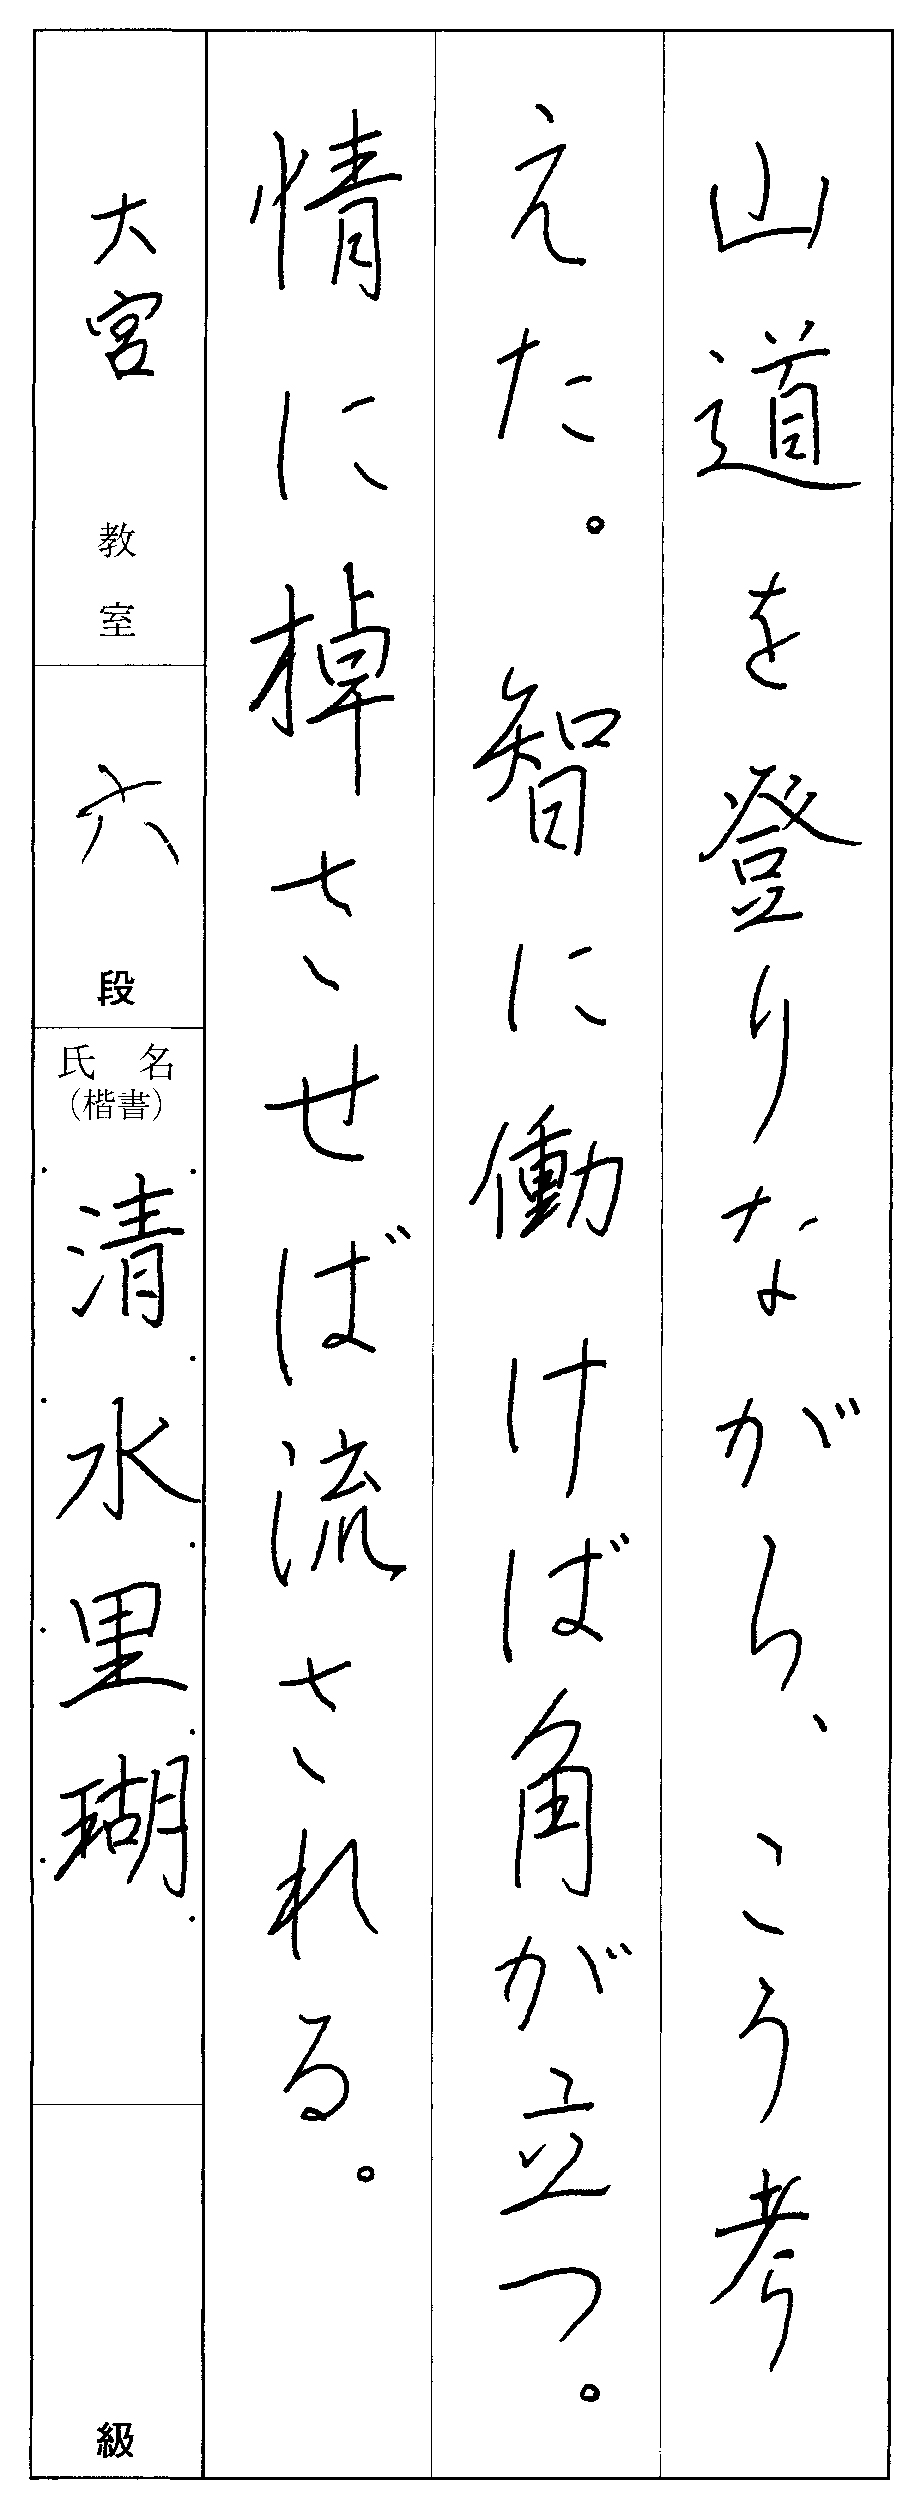 山道を登りながら、こう考
えた。智に働けば角が立つ。
情に棹させば流される。
大宮 教室
六 段
氏 名
（楷書）
清水里瑚
級